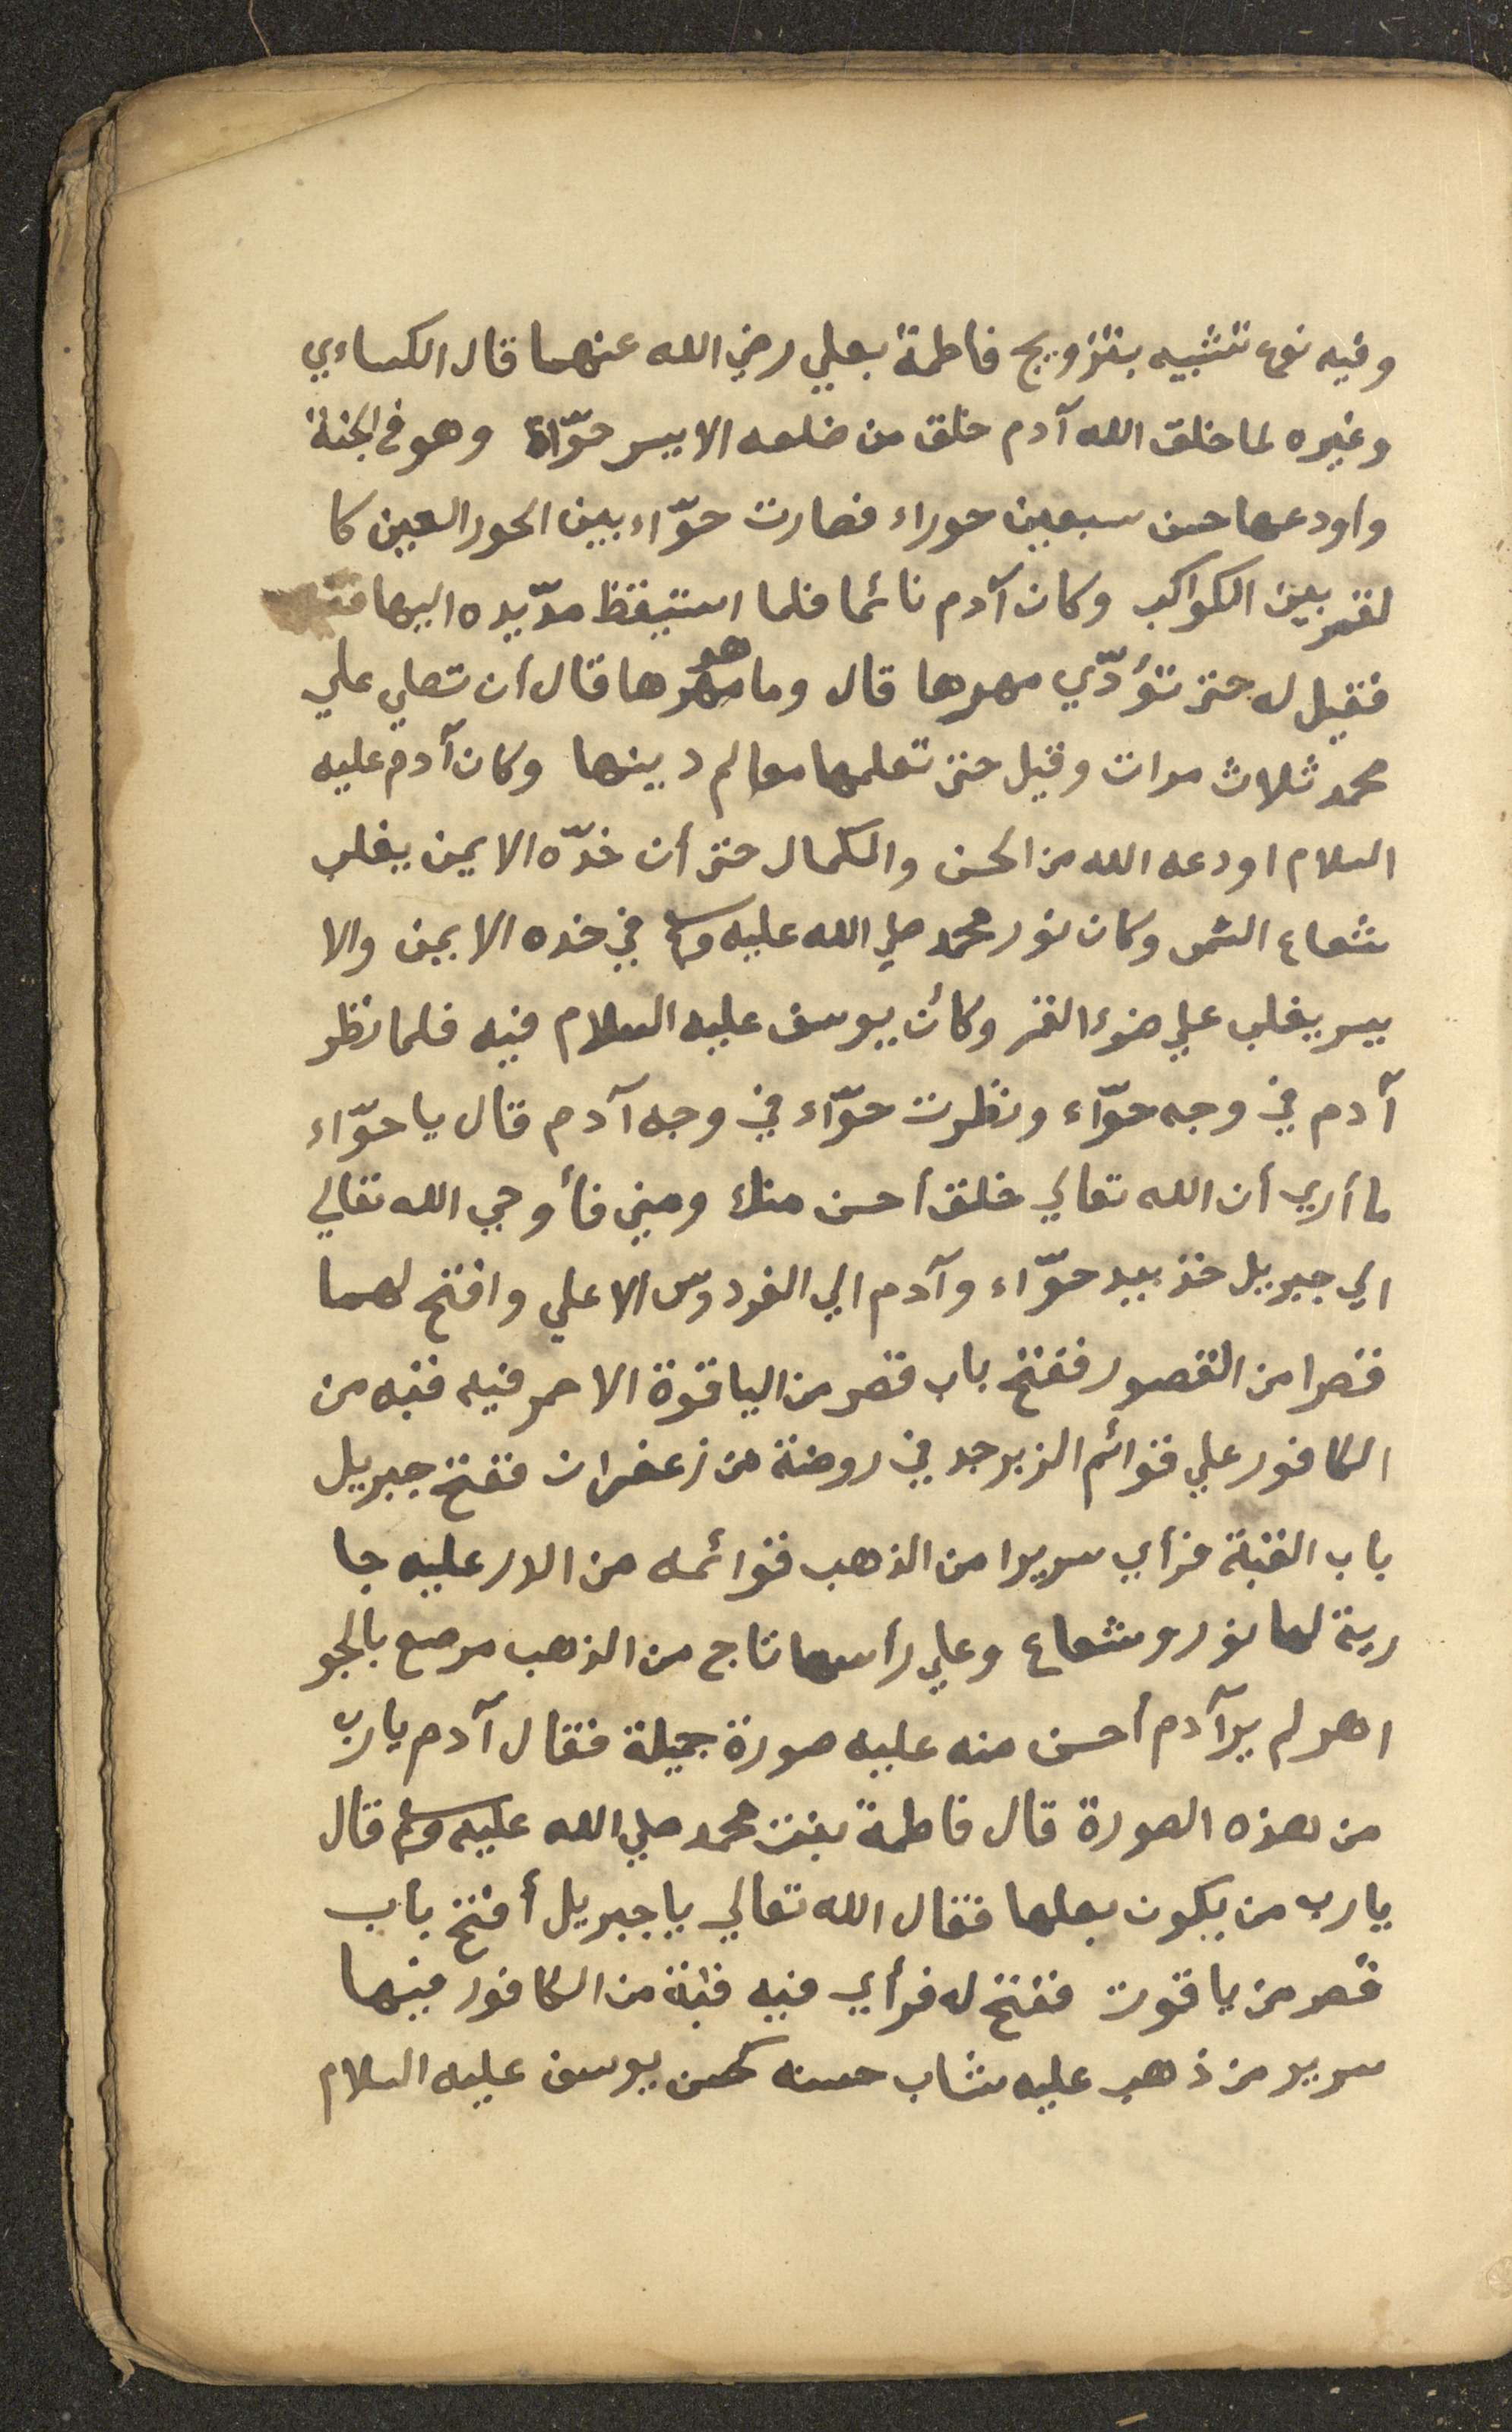 وفيه نوع تشبيه بتزويج فاطمة بعلي رضي الله عنهما قال الكساءي
وغيره لما خلق الله آدم خلق من ضلعه الايسر حوّاء وهو في الجنة
واودعها حسن سبعين حوراء فصارت حوّاء بين الحور العين كا
لقمر بين الكواكب وكان آدم نائما فلما استيقظ مدّ يده اليها
فقيل له حتى تؤدّي مهرها قال وما مهرها قال أن تصلي علي
محمد ثلاث مرات وقيل حتى تعلمها معالم دينها وكان آدم عليه
السلام اودعه الله من الحسن والكمال حتى أن خدّه الايمن يغلب
شعاع الشمس وكان نور محمد صلي الله عليه وسلم في خده الايمن والا
يسر يغلب علي ضوء القمر وكأن يوسف عليه السلام فيه فلما نظر
آدم في وجه حوّاء ونظرت حوّاء في وجه آدم قال يا حوّاء
ما أري أن الله تعالي خلق أحسن منك ومني فأوحي الله تعالي
الي جبريل خذ بيد حوّاء وآدم الي الفردوس الاعلي وافتح لهما
قصرا من القصور ففتح باب قصر من الياقوة الاحمر فيه قبه من
الكافور علي قوائم الزبرجد في روضة من زعفران ففتح جبريل
باب القبة فرأي سريرا من الذهب قوائمه من الدر عليه جا
رية لها نور وشعاع وعلي رأسها تاج من الذهب مرصع بالجو
اهر لم ير آدم أحسن منه عليه صورة جميلة فقال آدم يا رب
من هذه الصورة قال فاطمة بنت محمد صلي الله عليه وسلم قال
يا رب من يكون بعلها فقال الله تعالي يا جبريل أفتح باب
قصر من ياقوت ففتح له فرأي فيه قبة من الكافور فيها
سرير من ذهب عليه شاب حسنه كحسن يوسف عليه السلام